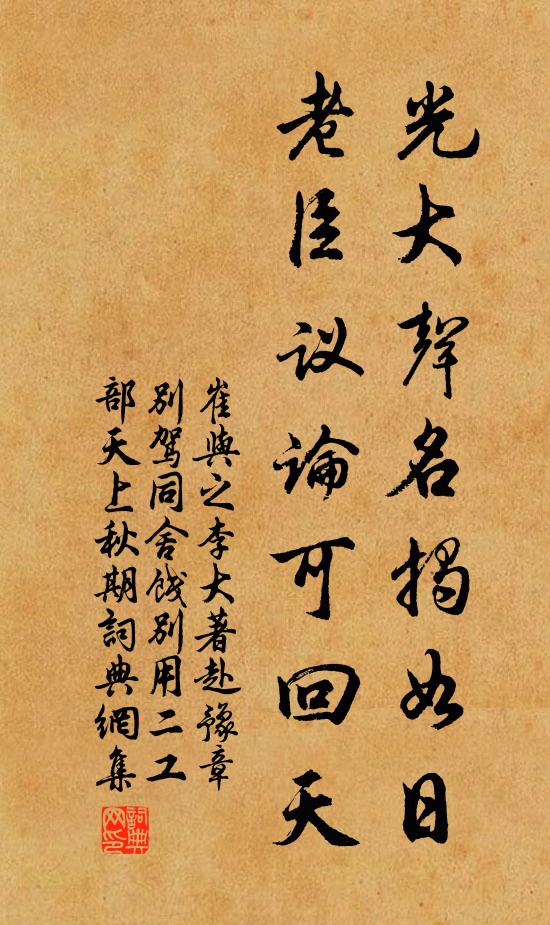 光大聲名揭如日
老臣议論可回天
崔與之李大著赴豫章
别駕同舍餞别用二工
部天上秋期詞典網集
詞典网印